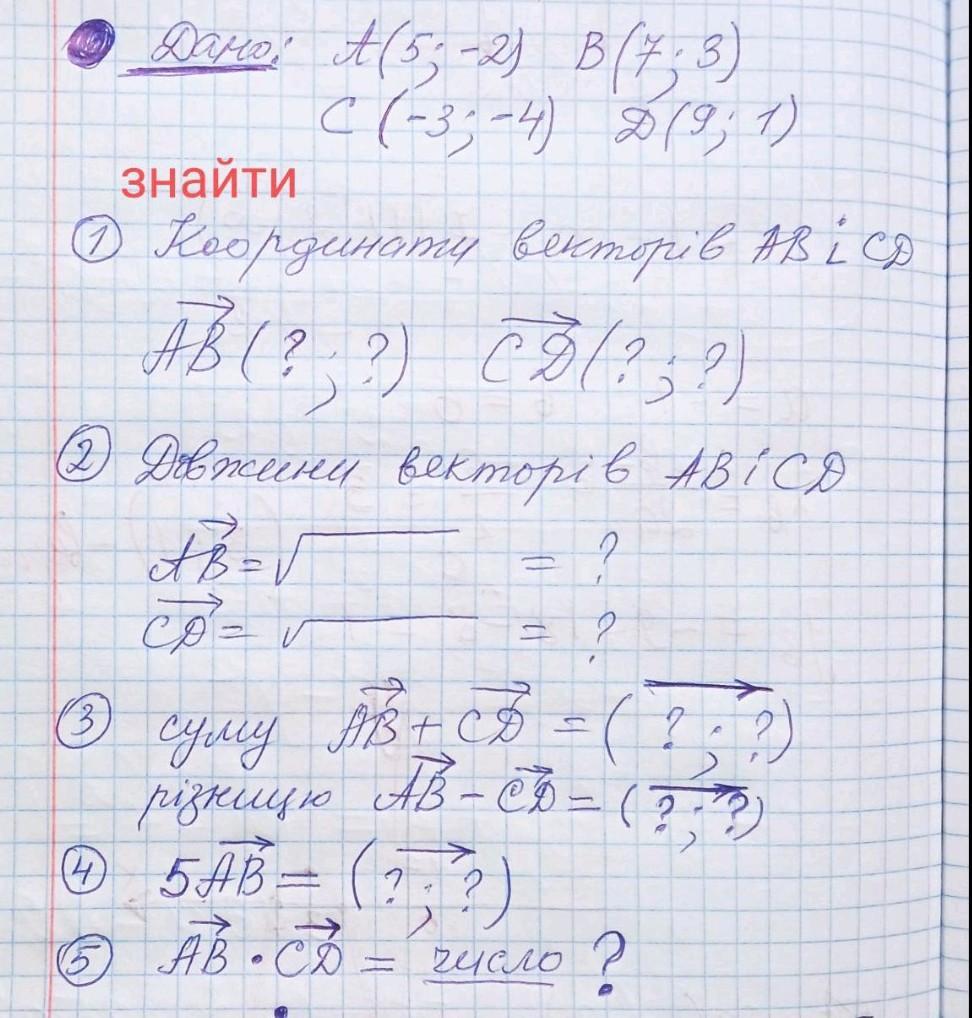 Дано: A(5; -2) B(7; 3)
C(-3; -4) D(9; 1)
знайти
① Координати векторів AB і CD
AB(?; ?) CD(?; ?)
② Довжини векторів AB і CD
AB = √ = ?
CD = √ = ?
③ суму AB + CD = (?; ?)
різницю AB - CD = (?; ?)
④ 5AB = (?; ?)
⑤ AB · CD = число ?